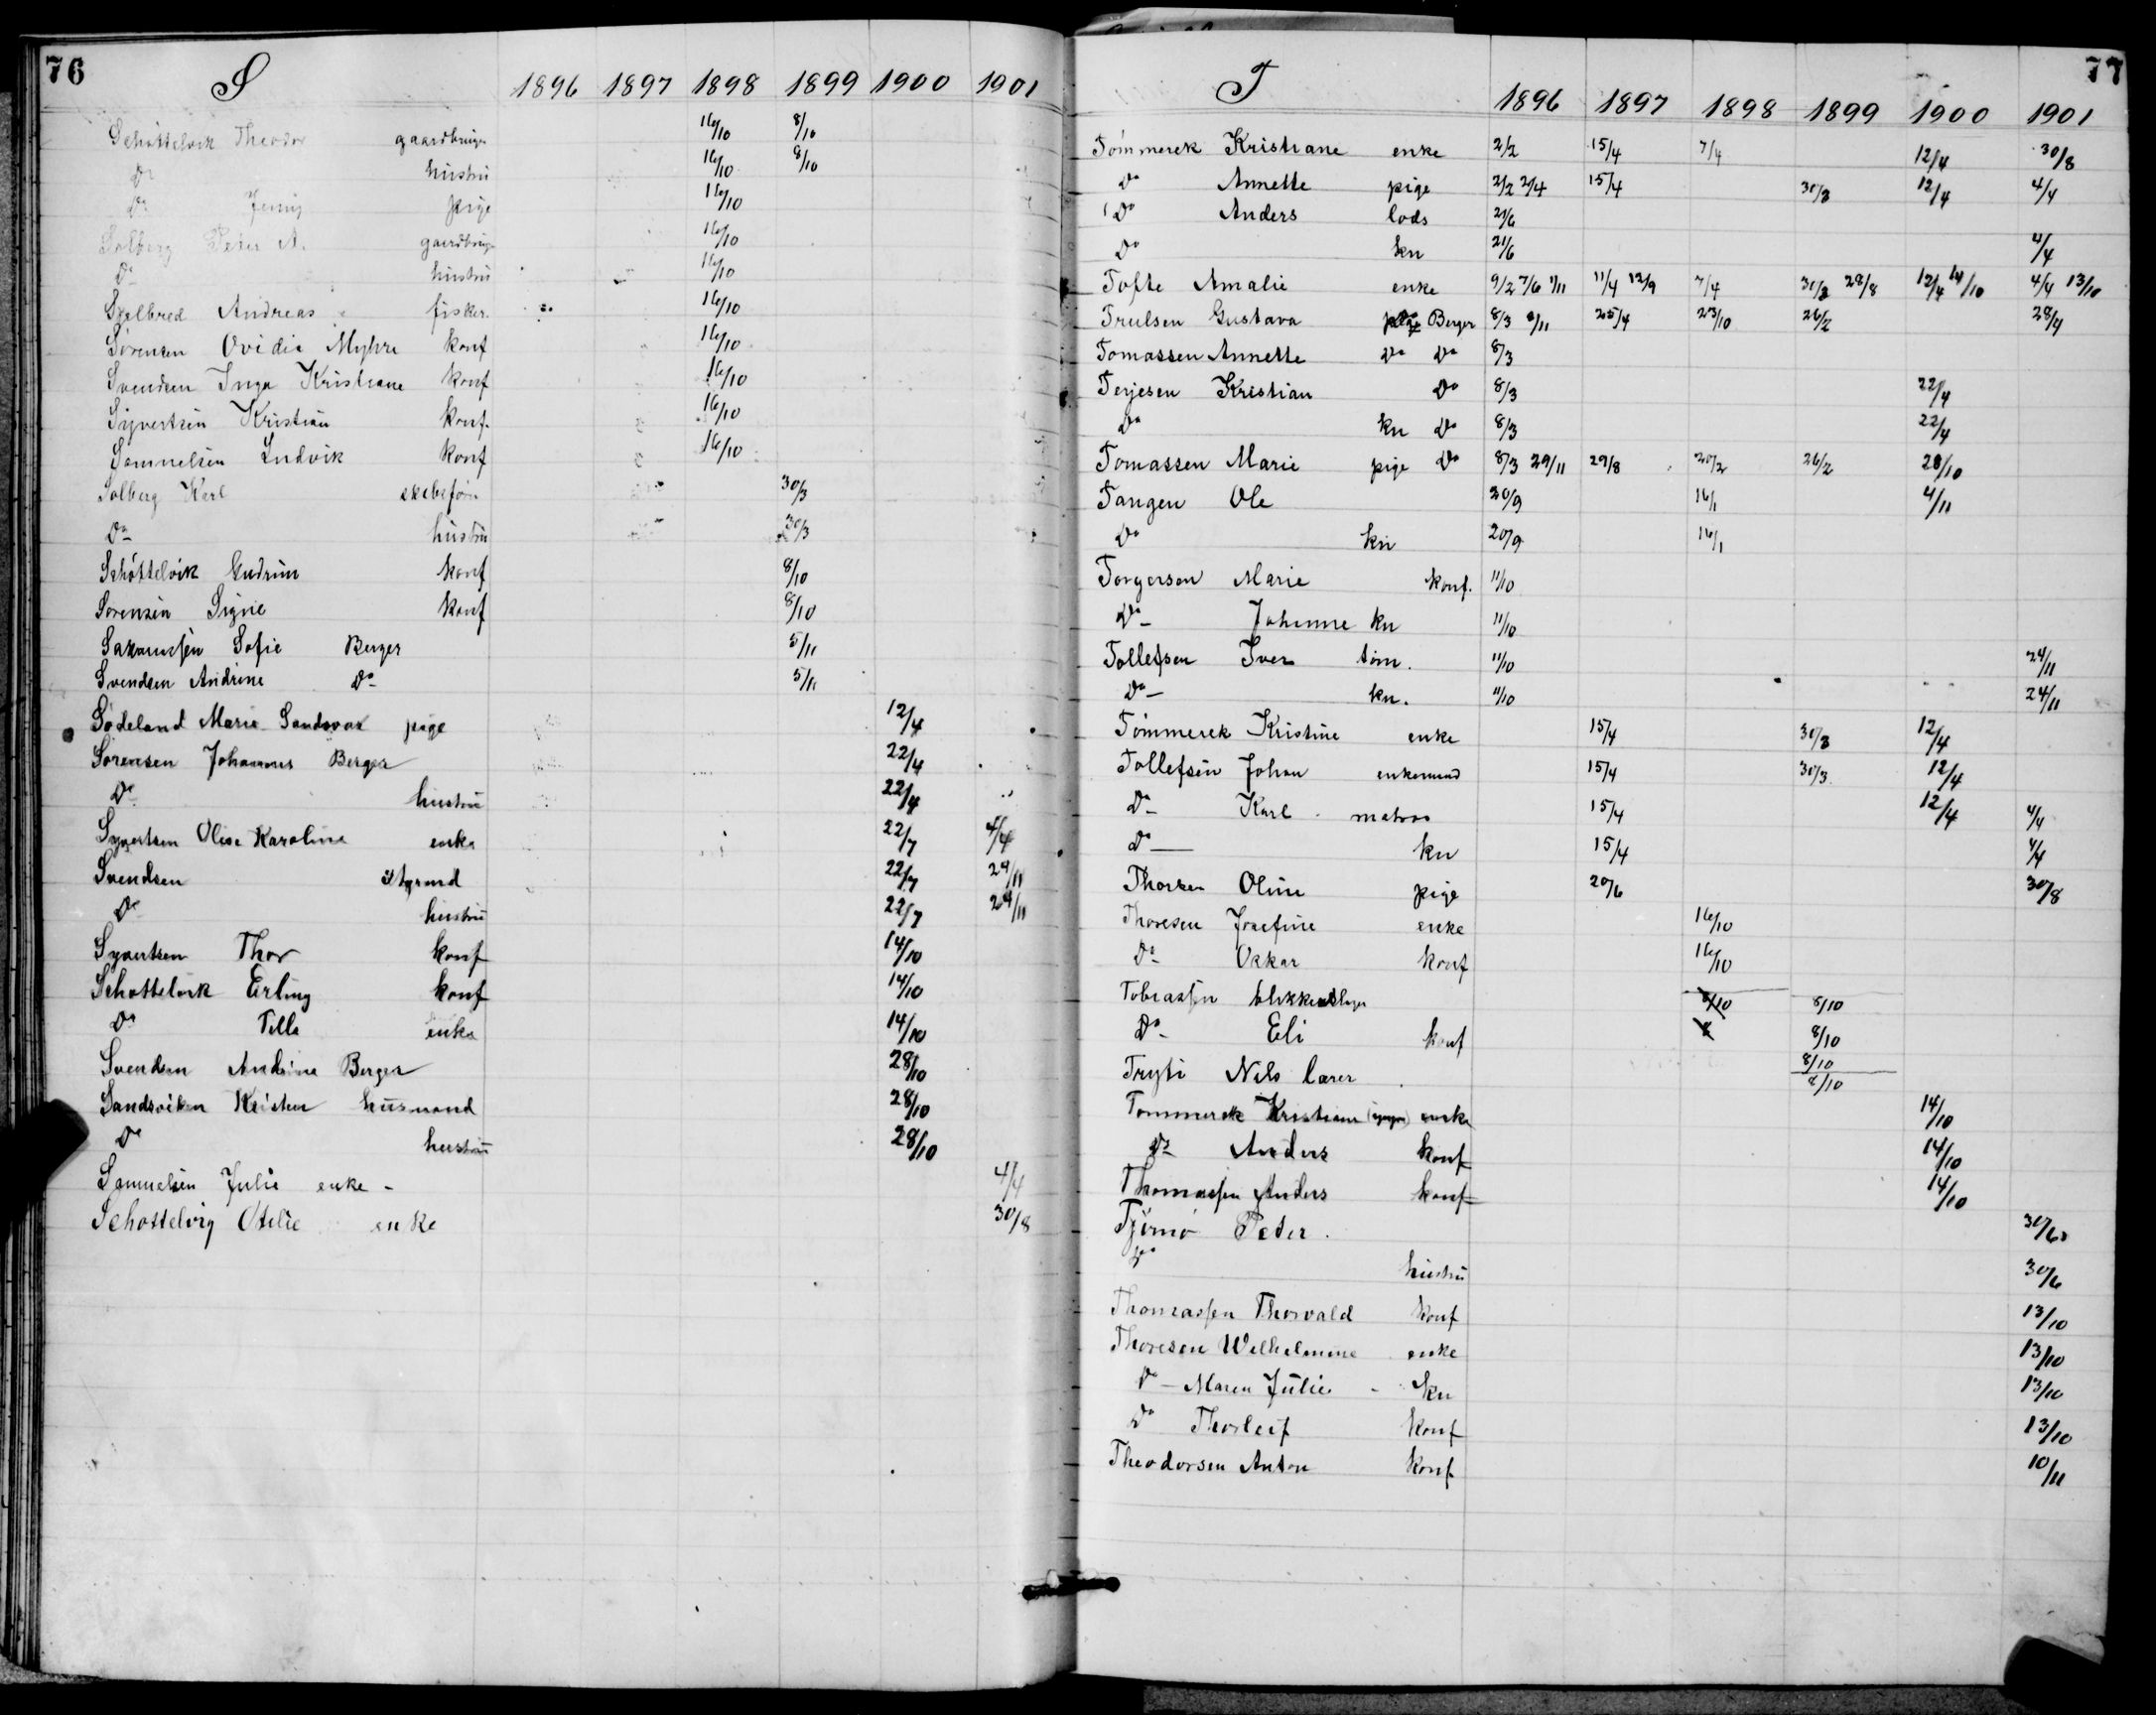 76
S 1896 1897 1898 1899 1900 1901
Schöttelvik Theodor gaardbruger 16/10 8/10
Do hustru 16/10 8/10
Do Jenny pige 16/10
Solberg Peter A. gaardbruger 16/10
Do hustru 16/10
Sjelbred Andreas fisker. 16/10
Sörensen Ovidia Myhre konf 16/10
Svendsen Inga Kristiane konf 16/10
Syvertsen Kristian konf. 16/10
Samuelsen Ludvik konf 16/10
Solberg Karl skibsförer 30/3
Do hustru 30/3
Schöttelvik Gudrun konf 8/10
Sorensen Signe konf 8/10
Sakariassen Sofie Berger 5/11
Svendsen Andrine Do 5/11
Sødeland Marie Sandsvar pige 12/4
Sørensen Johannes Berger 22/4
Do hustru 22/4
Syvertsen Olise Karoline enke 22/7 4/4
Svendsen Styrmd 22/7 24/11
Do hustru 22/7 24/11
Syvertsen Thor konf 14/10
Schottelvik Erling konf 14/10
Do Tilla enke 14/10
Svendsen Andrine Berger 28/10
Sandsviken Kristen husmand 28/10
Do hustru 28/10
Samuelsen Julie enke - 4/4
Schottelvig Otelie enke 30/8
77
T 1896 1897 1898 1899 1900 1901
Tömmerek Kristiane enke 2/2 15/4 7/4 12/4 30/8
Do Annette pige 2/2 2/4 15/4 30/3 12/4 4/4
Do Anders lods 21/6
Do kn 21/6 4/4
Tofte Amalie enke 9/2 7/6 1/11 11/4 12/9 7/4 30/3 28/8 12/4 14/10 4/4 13/10
Trulsen Gustava Berger 8/3 8/11 25/4 23/10 26/2 28/4
Tomassen Annette Do Do 8/3
Terjesen Kristian Do 8/3 22/4
Do kn Do 8/3 22/4
Tomassen Marie pige Do 8/3 29/11 29/8 20/2 26/2 28/10
Tangen Ole 20/9 16/1 4/11
Do kn 20/9 16/1
Torgersen Marie konf. 11/10
Do Johanne kn 11/10
Tollefsen Iver töm. 11/10 24/11
Do kn. 11/10 24/11
Tömmerek Kristine enke 15/4 30/3 12/4
Tollefsen Johan enkemand 15/4 30/3 12/4
Do Karl matros 15/4 12/4 4/4
Do kn 15/4 4/4
Thorsen Oline pige 20/6 30/8
Thoresen Josefine enke 16/10
Do Oskar konf 16/10
Tobiassen blikkenslager 8/10 8/10
Do Eli konf 8/10
8/10
Tryti Nils lærer 8/10
Tommerek Kristiane enke 14/10
Do Anders konf 14/10
Thomassen Anders konf 14/10
Tjömö Peter. 30/6
Do hustru 30/6
Thomassen Thorvald konf 13/10
Thoresen Wilhelmine enke 13/10
Do Maren Julie - kn 13/10
Do Thorleif konf 13/10
Theodorsen Anton konf 10/11